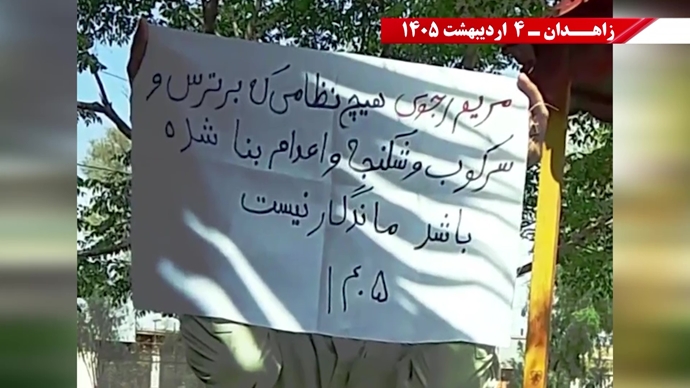 زاهـدان ـ ۴ اردیبهشت ۱۴۰۵
مریم رجوی هیچ نظامی که بر ترس و
سرکوب و شکنجه و اعدام بنا شده
باشد ماندگار نیست
۱۴۰۵